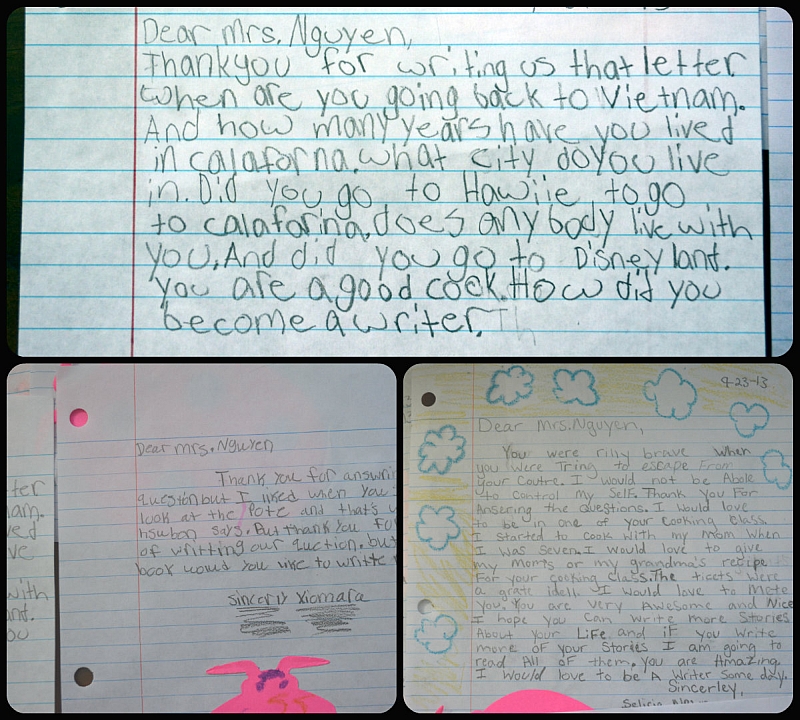 Dear Mrs. Nguyen,
Thankyou for writing us that letter
when are you going back to Vietnam.
And how many years have you lived
in calaforna. what city do you live
in. Did you go to Hawiie to go
to calaforina, does any body live with
you. And did you go to Disney land.
you are a good cock. How did you
become a writer. Th
ter
nam.
ved
ve
with
and.
ou
Dear mrs. Nguyen
Thank you for answrin
question but I liked when you
look at the Pote and that's
husban says. But thank you fo
of writting our quction. but
book would you like to writte
sincerly Xiomara
9-23-13
Dear Mrs. Nguyen,
You were rilly brave when
you were Tring to escape From
your Coutre. I would not be Abole
to control my Self. Thank you For
Ansering the questions. I would love
to be in one of your cooking class.
I started to cook with my mom when
I was seven. I would love to give
my moms or my grandma's recipe
For your cooking class. The ticets were
a grate idell. I would love to Mete
you. You are very Awesome and Nice
I hope you can write more Stories
About your Life and if you write
more of your Stories I am going to
read All of them. you are Amazing.
I would love to be A writer some day.
Sincerley,